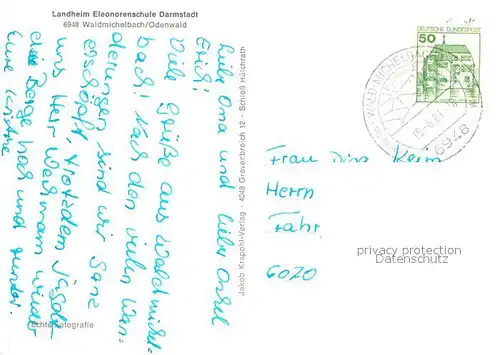 Landheim Eleonorenschule Darmstadt
6948 Waldmichelbach/Odenwald
Liebe Oma und lieber Onkel
Erich!
Viele Grüße aus Waldmichel-
bach! Nach den vielen Wan-
derungen sind wir ganz
erschöpft, trotzdem jagte
uns Herr Weihmann wieder
die Berge hoch und runter.
Eure
Echte Fotografie
Jakob Krapohl-Verlag · 4048 Grevenbroich 12 · Schloß Hülchrath
DEUTSCHE BUNDESPOST
50
WALD-MICHELBACH
6948
Frau
Herrn
Fahr
6070
privacy protection
Datenschutz